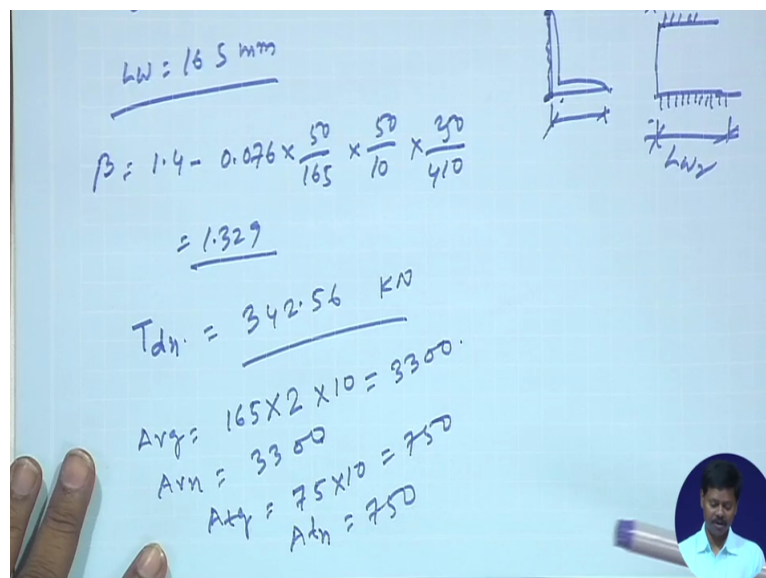 Lw = 165 mm
β = 1.4 - 0.076 × 50/165 × 50/10 × 250/410
= 1.329
Tdn. = 342.56 KN
Avg = 165 × 2 × 10 = 3300.
Avn = 3300
Atg = 75 × 10 = 750
Atn = 750
Lw2